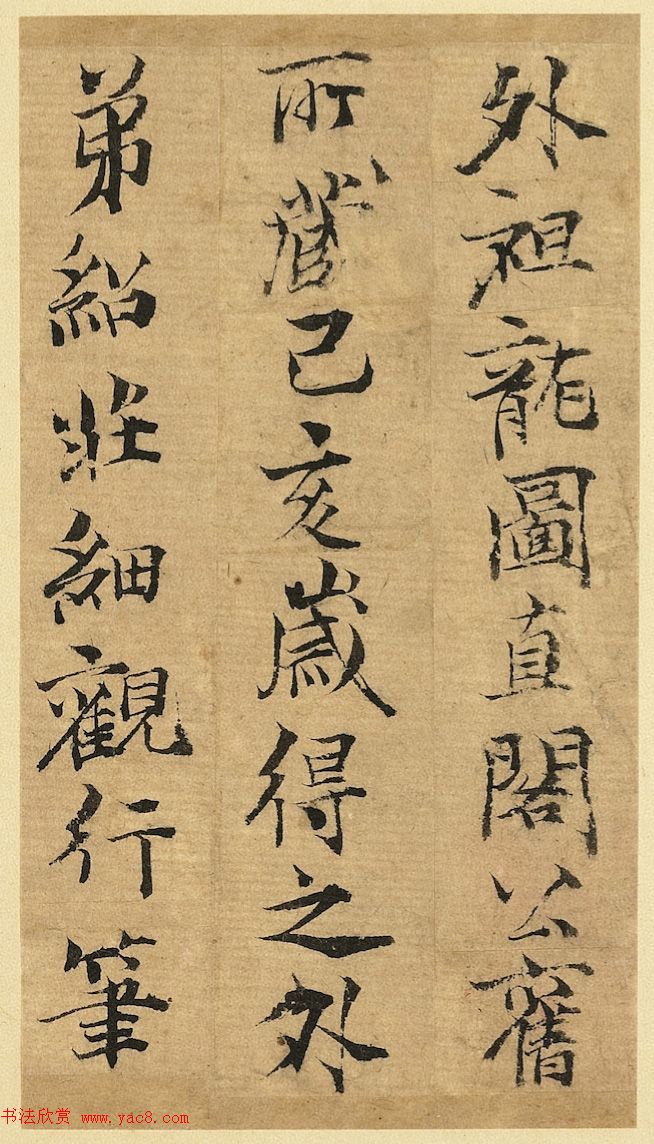 外祖龍圖直閣公舊
所藏己亥歲得之外
弟紹莊細觀行筆
书法欣赏 www.yac8.com